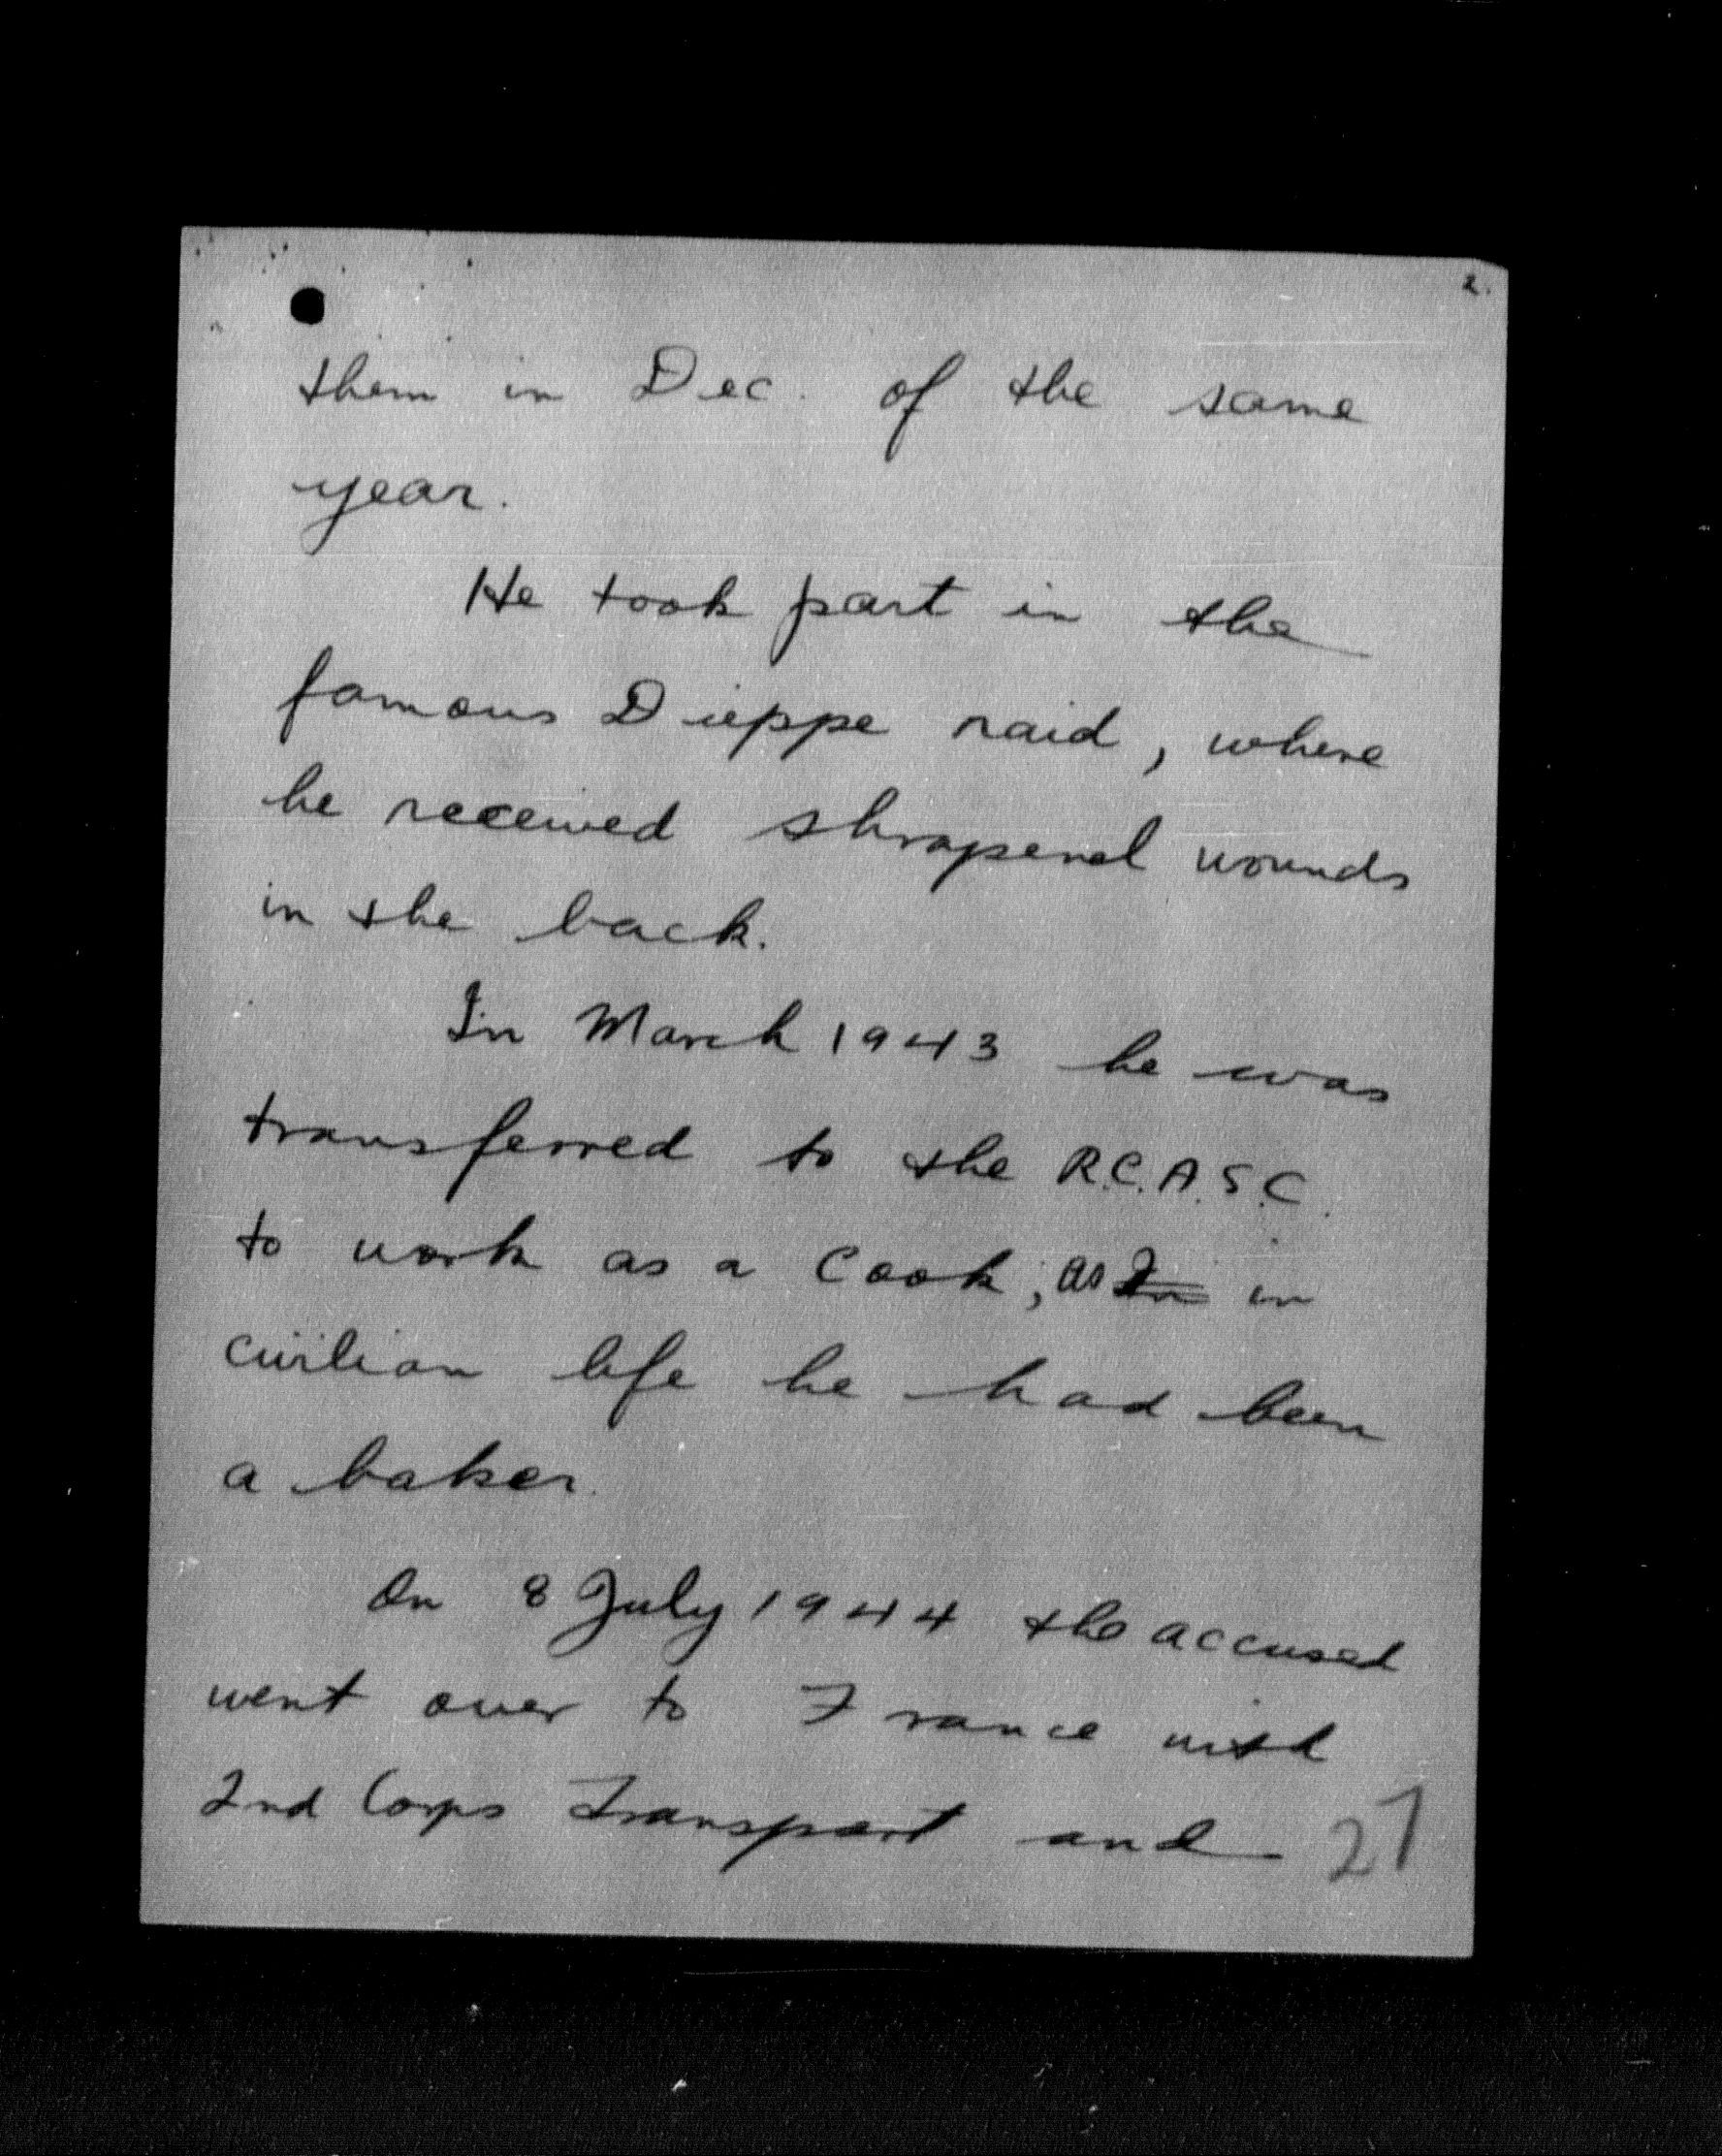 2.
them in Dec. of the same
year.
He took part in the
famous Dieppe raid, where
he received shrapenel wounds
in the back.
In March 1943 he was
transferred to the R.C.A.S.C.
to work as a Cook, as In in
civilian life he had been
a baker.
On 8 July 1944 the accused
went over to France with
2nd Corps Transport and
27